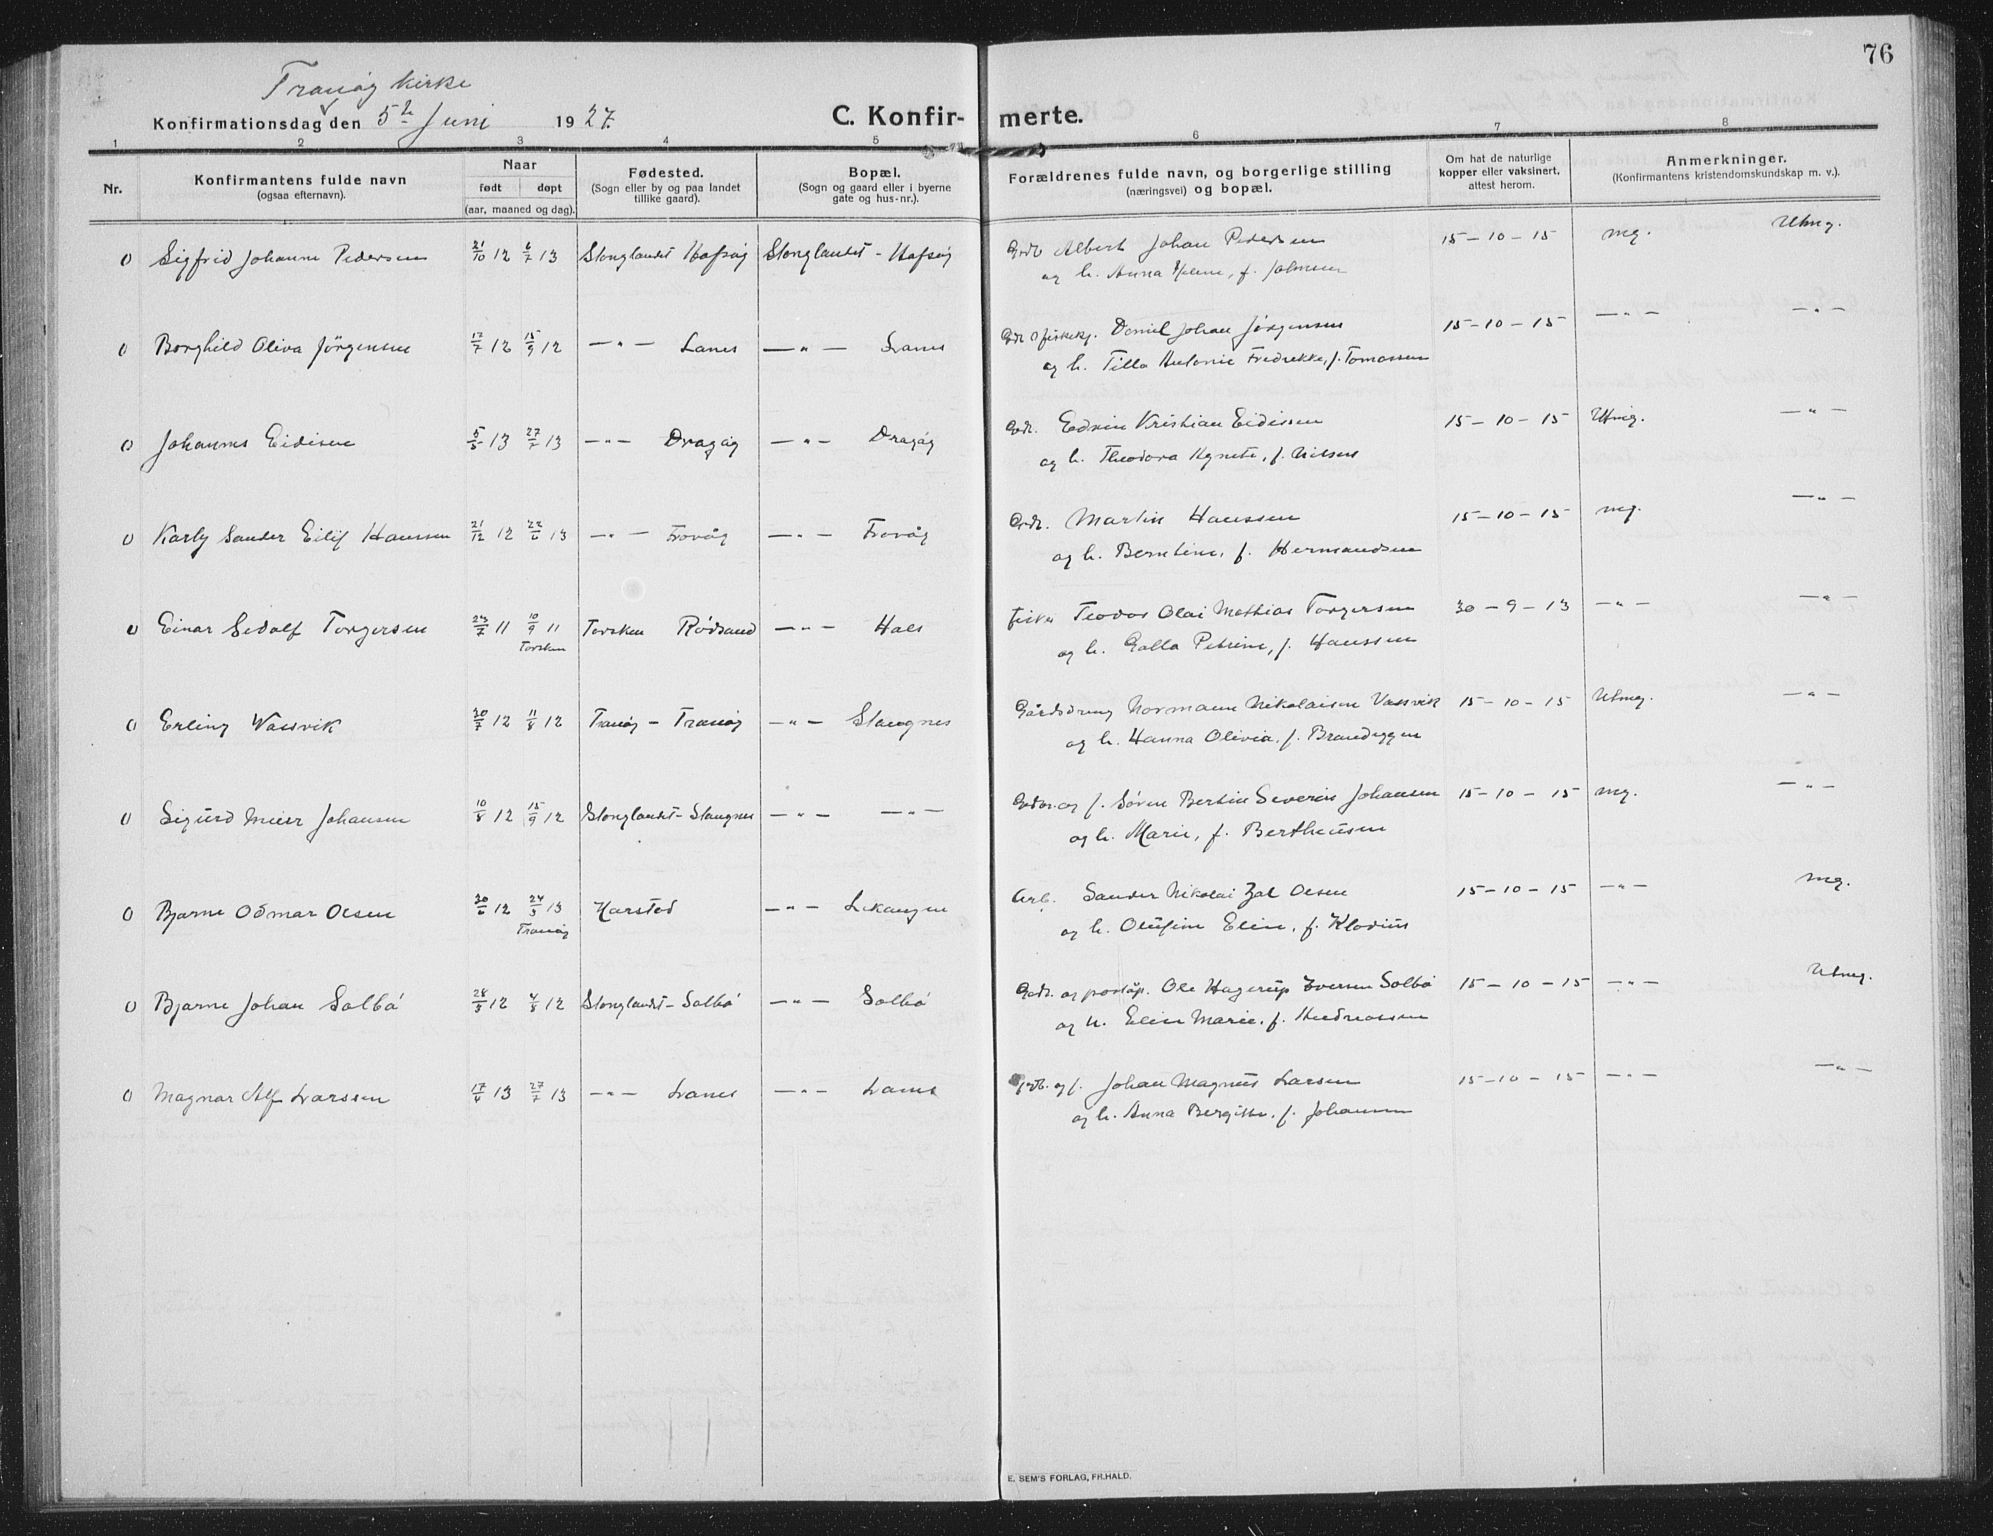 76
Tranøy kirke
Konfirmationsdag den 5te Juni 1927.
C. Konfir- merte.
1 2 3 4 5 6 7 8
Nr.
Konfirmantens fulde navn
(ogsaa efternavn).
Naar
født døpt
(aar, maaned og dag).
Fødested.
(Sogn eller by og paa landet
tillike gaard).
Bopæl.
(Sogn og gaard eller i byerne
gate og hus-nr.).
Forældrenes fulde navn, og borgerlige stilling
(næringsvei) og bopæl.
Om hat de naturlige
kopper eller vaksinert,
attest herom.
Anmerkninger.
(Konfirmantens kristendomskundskap m. v.).
0 Sigfrid Johanne Pedersen 21/10 12 6/7 13 Stonglandet Hofsøy Stonglandet - Hofsøy Grdb. Albert Johan Pedersen 15-10-15 mg. Utmg.
og h. Anna Helene, f. Johnsen
0 Borghild Oliva Jörgensen 17/7 12 15/9 12 -"- Lanes -"- Lanes Daniel Johan Jørgensen 15-10-15 -"- -"-
og h. Tilla Antonie Fredrekke, f. Tomassen
0 Johannes Eidisen 5/5 13 27/7 13 -"- Dragøy -"- Dragøy Gdr. Edvin Kristian Eidissen 15-10-15 Utmg. -"-
og h. Theodora Agnete, f. Nielsen
0 Karly Sander Eilif Hanssen 21/12 12 22/6 13 -"- Frovåg -"- Frovåg Grdr. Martin Hanssen 15-10-15 mg. -"-
og h. Berntine, f. Hermandsen
0 Einar Sedolf Torgersen 23/7 11 10/9 11 Torsken Rödsand -"- Hals Fisker Teodor Olai Mathias Torgersen 30-9-13 -"- -"-
Torsken
og h. Golla Petrine, f. Hanssen
0 Erling Vassvik 20/7 12 11/8 12 Tranøy - Tranøy -"- Stangnes Gårdsdreng Normann Nikolaisen Vassvik 15-10-15 Utmg. -"-
og h. Hanna Olivia, f. Brandeggen
0 Sigurd Meier Johansen 10/8 12 15/9 12 Stonglandet - Stangnes -"- -"- Grdbr. og f. Søren Bertin Severin Johansen 15-10-15 mg. -"-
og h. Marie, f. Bertheusen
0 Bjarne Odmar Olsen 30/6 12 24/3 13 Harsted -"- Lekangen Arb. Sander Nikolai Zal Olsen 15-10-15 -"- mg.
Tranøy
og h. Olufine Elin, f. Klodius
0 Bjarne Johan Solbø 28/5 12 4/8 12 Stonglandet - Solbø -"- Solbø Gdr. og poståp. Ole Hagerup Iversen Solbø 15-10-15 -"- Utmg.
og h. Elen Marie, f. Andreassen
0 Magnar Alf Larssen 17/4 13 27/7 13 -"- Lanes -"- Lanes Grdb. og f. Johan Magnus Larsen 15-10-15 -"- -"-
og h. Anna Bergitte, f. Johansen
E. SEM'S FORLAG, FR.HALD.